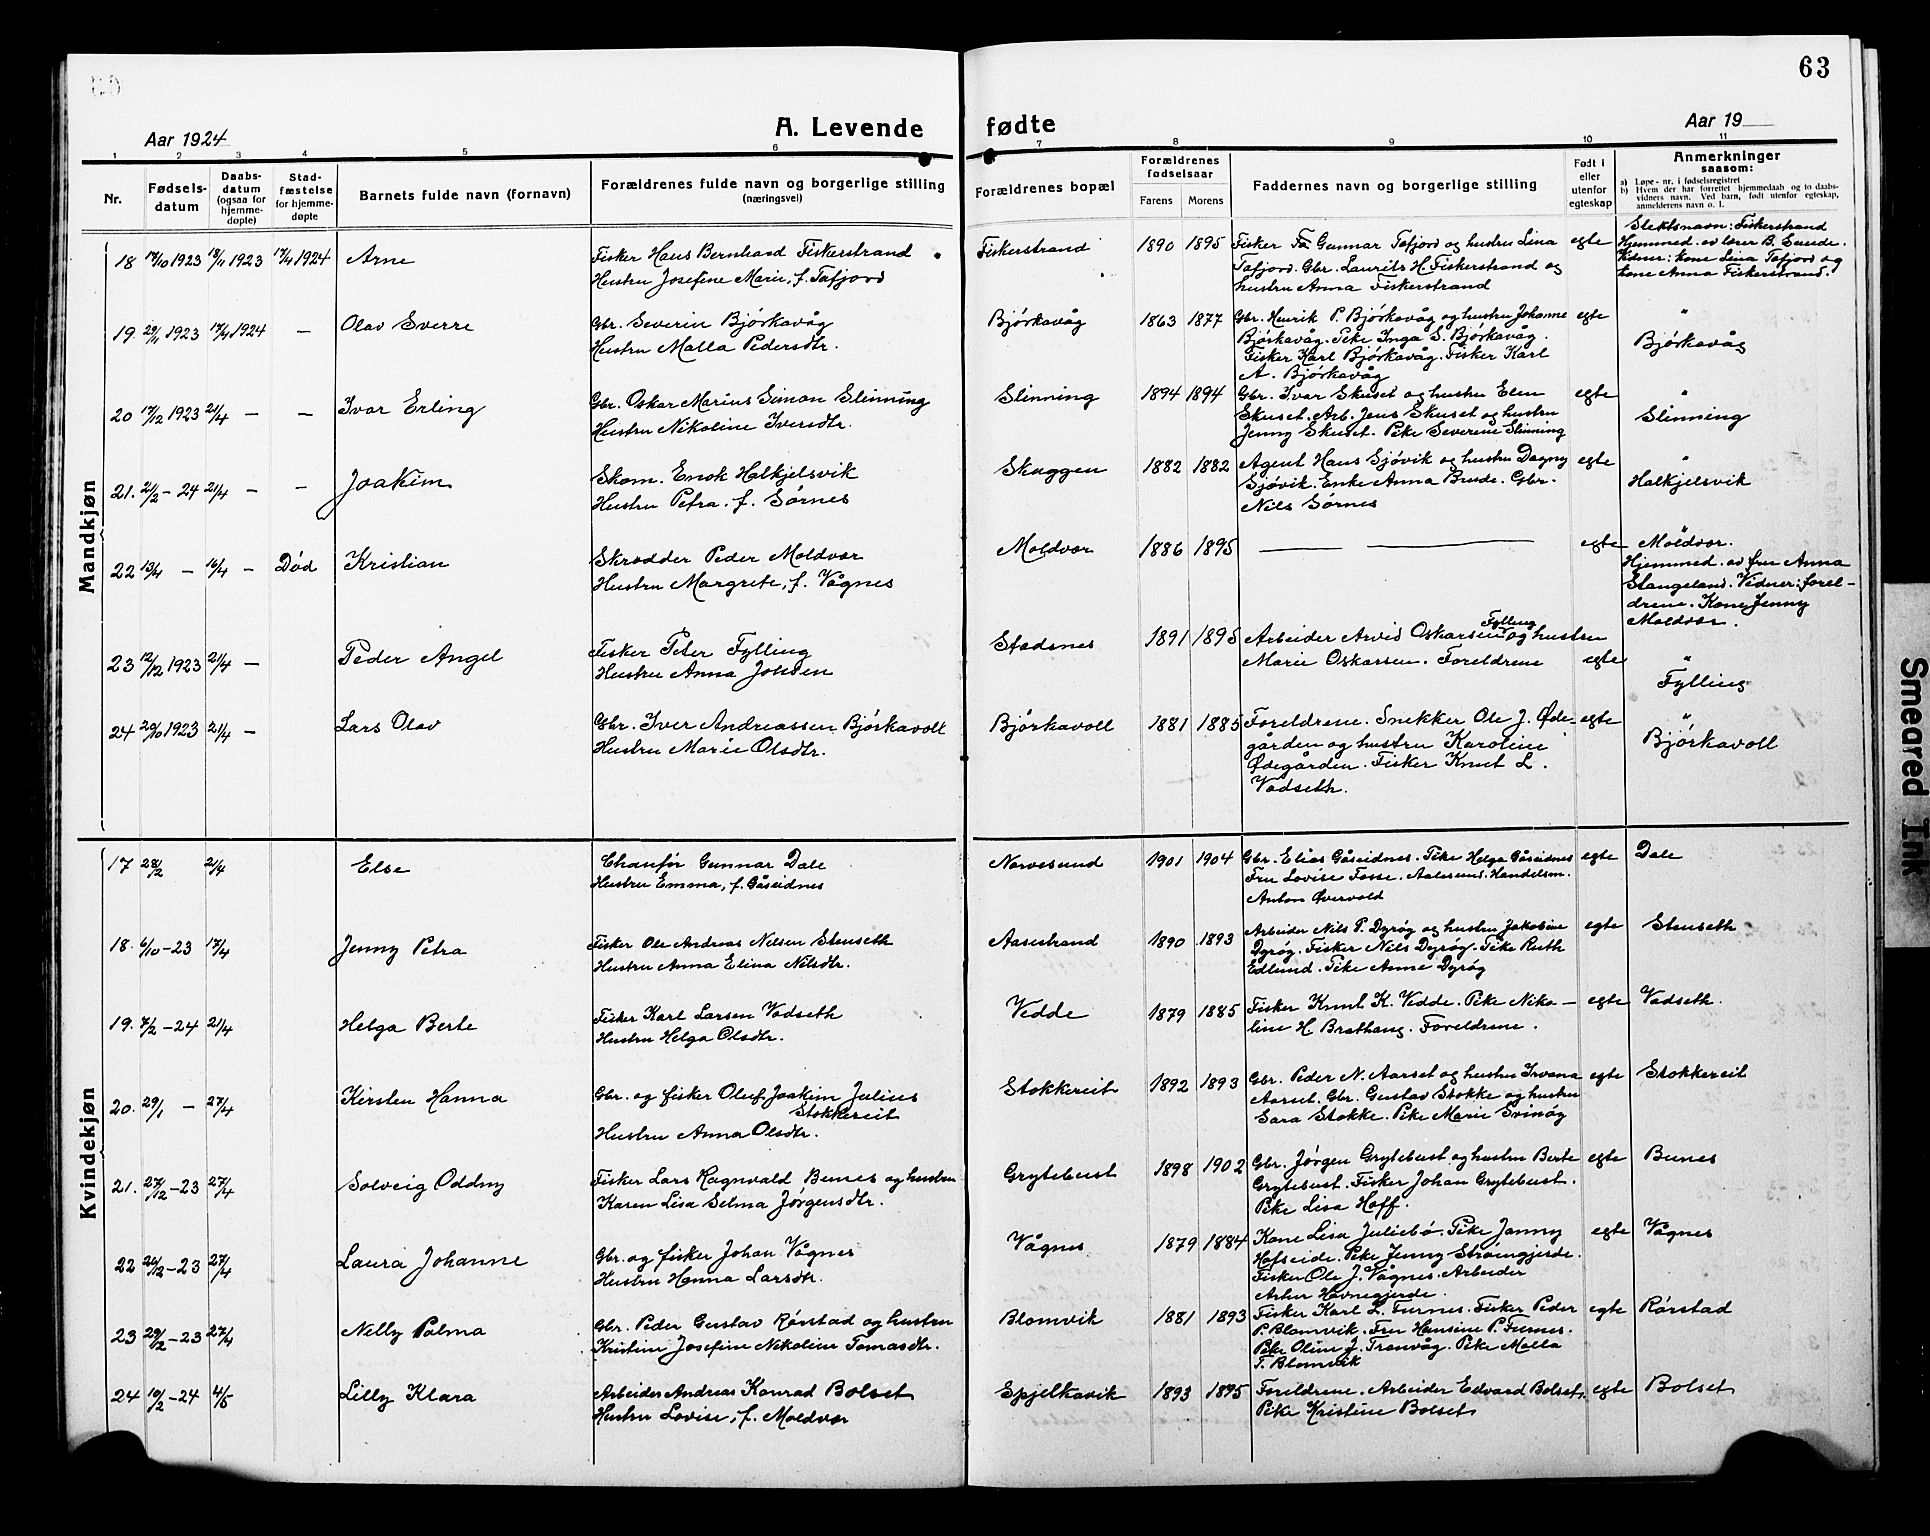 63
Aar 1924
A. Levende fødte
Aar 19
1 2 3 4 5 6 7 8 9 10 11
Nr.
Fødsels-
datum
Daabs-
datum
(ogsaa for
hjemme-
døpte)
Stad-
fæstelse
for hjemme-
døpte
Barnets fulde navn (fornavn)
Forældrenes fulde navn og borgerlige stilling
(næringsvei)
Forældrenes bopæl
Forældrenes
fødselsaar
Farens Morens
Faddernes navn og borgerlige stilling
Født i
eller
utenfor
egteskap
Anmerkninger
saasom:
a) Løpe-nr. i fødselsregistret
b) Hvem der har forrettet hjemmedaab og to daabs-
vidners navn. Ved barn, født utenfor egteskap,
anmelderens navn o. l.
Mandkjøn
18 17/10 1923 18/11 1923 17/4 1924 Arne
Fisker Hans Bernhard Fiskerstrand
Hustru Josefine Marie, f. Tafjord
Fiskerstrand 1890 1895
Fisker Fr. Gunnar Tafjord og hustru Lina
Tafjord. Gbr. Laurits H. Fiskerstrand og
hustru Anna Fiskerstrand
egte
Slektsnavn: Fiskerstrand
Hjemmed. av lærer B. Sunde.
Vidner: kone Lina Tafjord og
kone Anna Fiskerstrand.
19. 29/11 1923 17/4 1924 — Olav Sverre
Gbr. Severin Bjørkavåg
Hustru Malla Pedersdtr.
Bjørkavåg 1863 1877
Gbr. Henrik P. Bjørkavåg og hustru Johanne
Bjørkavåg. Pike Inga S. Bjørkavåg.
Fisker Karl Bjørkavåg. Fisker Karl
A. Bjørkavåg
egte
"
Bjørkavåg
20 17/12 1923 21/4 — — Ivar Erling
Gbr. Oskar Marius Simon Slinning
Hustru Nikoline Iversdtr.
Slinning 1894 1894
Gbr. Ivar Skuset og hustru Elen
Skuset. Arb. Jens Skuset og hustru
Jenny Skuset. Pike Severine Slinning
egte
"
Slinning
21. 2/2 – 24 21/4 — — Joakim
Skom. Enok Halkjelsvik
Hustru Petra. f. Sørnes
Skuggen 1882 1882
Agent Hans Sjövik og hustru Dagny
Sjövik. Enke Anna Brude. Gbr.
Nils Sørnes
egte
"
Halkjelsvik
22 13/4 — 16/4 — Død Kristian
Skrædder Peder Moldvær
Hustru Margrete, f. Vågnes
Moldvær 1886 1895 — —
egte
Moldvær.
Hjemmed. av fru Anna
Stangeland. Vidner: forel-
drene. Kone Jenny
Moldvær.
23 12/12 1923 21/4 — Peder Angel
Fisker Peter Fylling
Hustru Anna Johsen
Stadsnes 1891 1895
Fylling
Arbeider Arvid Oskarsen og hustru
Marie Oskarsen. Foreldrene
egte
"
Fylling
24 20/10 1923 21/4 — Lars Olav
Gbr. Iver Andreassen Bjørkavoll
Hustru Marie Olsdtr.
Bjørkavoll 1881 1885
Foreldrene. Snekker Ole J. Øde-
gården og hustru Karoline
Ødegården. Fisker Knut L.
Vadseth.
egte
"
Bjørkavoll
Kvindekjøn
17 28/2 21/4 Else
Chaufør Gunnar Dale
Hustru Emma, f. Gåseidnes
Nørvesund 1901 1904
Gbr. Elias Gåseidnes. Pike Helga Gåseidnes
Fru Lovise Fosse. Aalesund. Handelsm.
Anton Øvervold
egte Dale
18. 6/10–23 17/4 Jenny Petra
Fisker Ole Andreas Nelsen Stenseth
Hustru Anna Elina Nilsdtr.
Aasestrand 1890 1893
Arbeider Nils P. Dyrøy og hustru Jakobine
Dyrøy. Fisker Nils Dyrøy. Pike Ruth
Edlund. Pike Anne Dyrøy
egte Stenseth
19. 7/2–24 21/4 Helga Berte
Fisker Karl Larsen Vadseth
Hustru Helga Olsdtr.
Vedde 1879 1885
Fisker Knut K. Vedde. Pike Niko-
line H. Brathaug. Foreldrene.
egte Vadseth.
20. 29/1 — 27/4 Kirsten Hanna
Gbr. og fisker Oluf Joakim Julius
Stokkereit
Hustru Anna Olsdtr.
Stokkereit 1892 1893
Gbr. Peder N. Aarset og hustru
Aarset. Gbr. Gustav Stokke og hustru
Sara Stokke. Pike Marie Svinøy
egte Stokkereit
21. 27/12–23 27/4 Solveig Oddny
Fisker Lars Ragnvald Bunes og hustru
Karen Lisa Selma Jørgensdtr.
Grytebust 1898 1902
Gbr. Jørgen Grytebust og hustru Berte
Grytebust. Fisker Johan Grytebust.
Pike Lisa Hoff.
egte Bunes
22 26/12–23 27/4 Laura Johanne
Gbr. og fisker Johan Vågnes
Hustru Hanna Larsdtr.
Vågnes 1879 1884
Kone Lisa Juliebø. Pike Jenny
Hofseide. Pike Jenny Strømgjerde.
Fisker Ole J. Vågnes. Arbeider
Arthur Havnegjerde.
egte Vågnes
23 29/12–23 27/4 Nelly Palma
Gbr. Peder Gustav Rørstad og hustru
Kristine Josefine Nikoline Tomasdtr.
Blomvik 1881 1893
Fisker Karl L. Furnes. Fisker Peder
P. Blomvik. Fru Hansine P. Furnes.
Pike Oline J. Tranvåg. Pike Malla
T. Blomvik
egte Rørstad
24 10/2–24 4/5 Lilly Klara
Arbeider Andreas Konrad Bolset
Hustru Lovise, f. Moldvær
Spjelkavik 1893 1895
Foreldrene. Arbeider Edvard Bolset.
Pike Kristine Bolset
egte Bolset
Smeared Ink